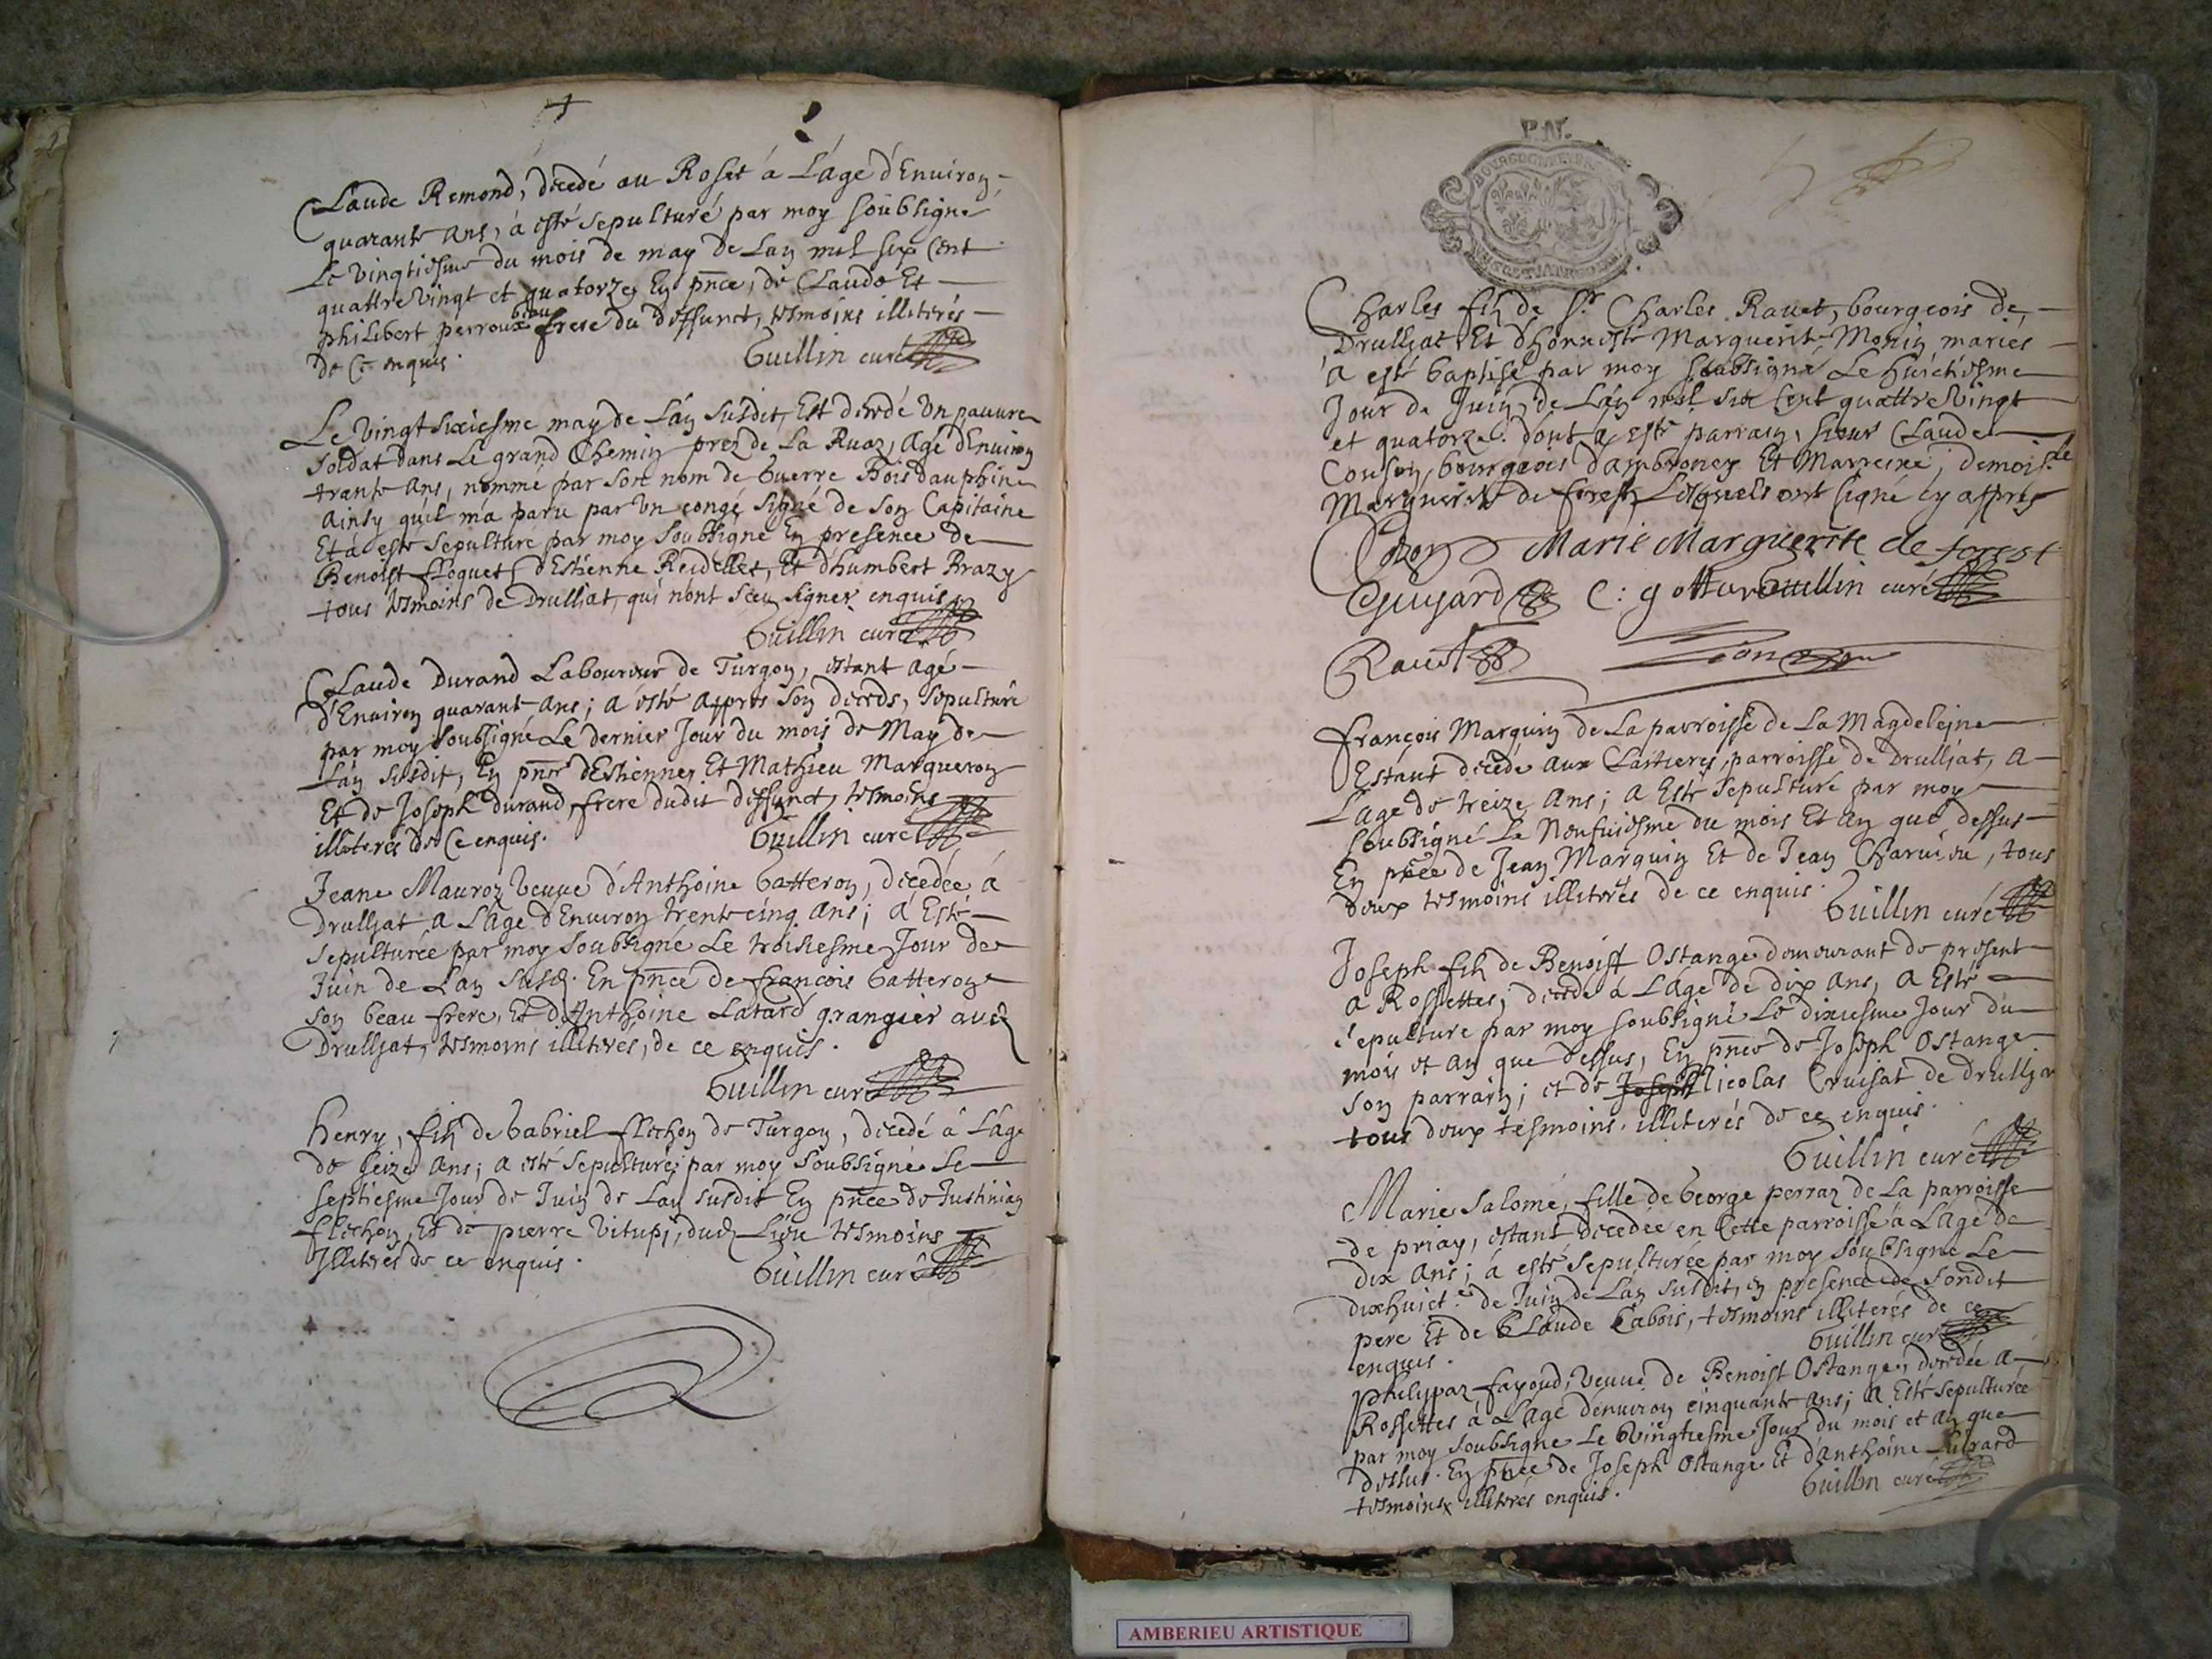 Claude Remond, décédé au Roset á L'áge d'Enuiron
quarante ans, á esté sepulturé par moy soubsigné
Le vingtiesme du mois de may de L'an mil six cent
quattre vingt et quatorze, En pnce, de Claude Et
philibert perroux beau frere du deffunct, tesmoins illiterés
de Ce enquis. Guillin curé
Le vingt sixiesme may de L'an susdit, Est décedé Un pauure
soldat dans Le grand Chemin prez de La Ruaz, agé d'Enuiron
trante ans, nommé par son nom de Guerre Bois dauphine
Ainsy qu'il m'a paru par Un congé signé de son Capitaine
Et á esté sepulturé par moy soubsigné En presence de
Benoist floquet, d'Estienne Reidellet, Et d'humbert Brazy
tous tesmoins de Drulliat, qui n'ont sceu signer enquis.
Guillin curé
Claude Durand Laboureur de Turgon, estant agé
d'Enuiron quarant ans; a esté appres son deceds, sepulturé
par moy soubsigné Le dernier Jour du mois de May de
L'an susdit, En pnce d'Estienne, Et Mathieu Marqueron
Et de Joseph durand, frere dudit deffunct, tesmoins
illiterés de Ce enquis. Guillin curé
Jeane Mauroz Veuue d'Anthoine Gatteron, décedée á
Drulliat a L'áge d'Enuiron trente cinq ans; á Esté
sepulturée par moy soubsigné Le troisiesme Jour de
Juin de L'an susd. En pnce de francois Gatteron
son beau frere, Et d'Anthoine Latard grangier aud
Drulliat, tesmoins illiterés, de ce enquis.
Guillin curé
Henry, fils de Gabriel flechon de Turgon, décedé á L'áge
de seize ans; a esté sepulturé par moy soubsigné Le
septiesme Jour de Juin de L'an susdit En pnce de Justinian
flechon, Et de pierre Vitupi, dud Lieu tesmoins
Illiterés de ce enquis. Guillin curé
P.N.
Charles fils de Sr Charles Rauet, bourgeois de
Drulliat Et d'honneste Marguerite Monin mariés
a esté baptisé par moy soubsigné Le huictiesme
Jour de Juin, de L'an mil six Cent quattre vingt
et quatorze. dont a esté parrain, sieur Claude
Couson, bourgeois d'ambronay Et Marreine, demoislle
Marguerite de forest Lesquels ont signé cy appres
Cozon Marie Marguerite de forest
Guyard Guillin curé
Rauet
françois Marquin de La parroisse de La Magdeleine
Estant décedé aux Carrieres, parroisse de Drulliat, a
L'age de treize ans; a Esté sepulturé par moy
soubsigné Le Neufuiesme du mois Et an que dessus
En pnce de Jean Marquin Et de Jean Charuieu, tous
deux tesmoins illiterés de ce enquis. Guillin curé
Joseph fils de Benoist Ostange demeurant de present
a Rossettes, décedé a L'áge de dix ans, a Esté
sepulturé par moy soubsigné Le dixiesme Jour du
mois et an que dessus, En pnce de Joseph Ostange
son parrain; et de Joseph Nicolas Cruisat de drulliat
tous deux tesmoins illiterés de ce enquis.
Guillin curé
Marie Salomé, fille de George perraz de La parroisse
de priay, estant décedée en Cette parroisse á L'áge de
dix ans; á esté sepulturée par moy soubsigné Le
dixhuict.e de Juin de L'an susdit, en presence de sondit
pere Et de Claude Cabois, tesmoins illiterés de ce
enquis. Guillin curé
philypaz fayoud, Veuue de Benoist Ostange, décedée a
Rossettes á L'áge d'enuiron cinquante ans; a Esté sepulturée
par moy soubsigné Le Vingtiesme Jour du mois et an que
dessus. En pnce de Joseph Ostange Et d'anthoine
tesmoins illiterés enquis. Guillin curé
AMBERIEU ARTISTIQUE